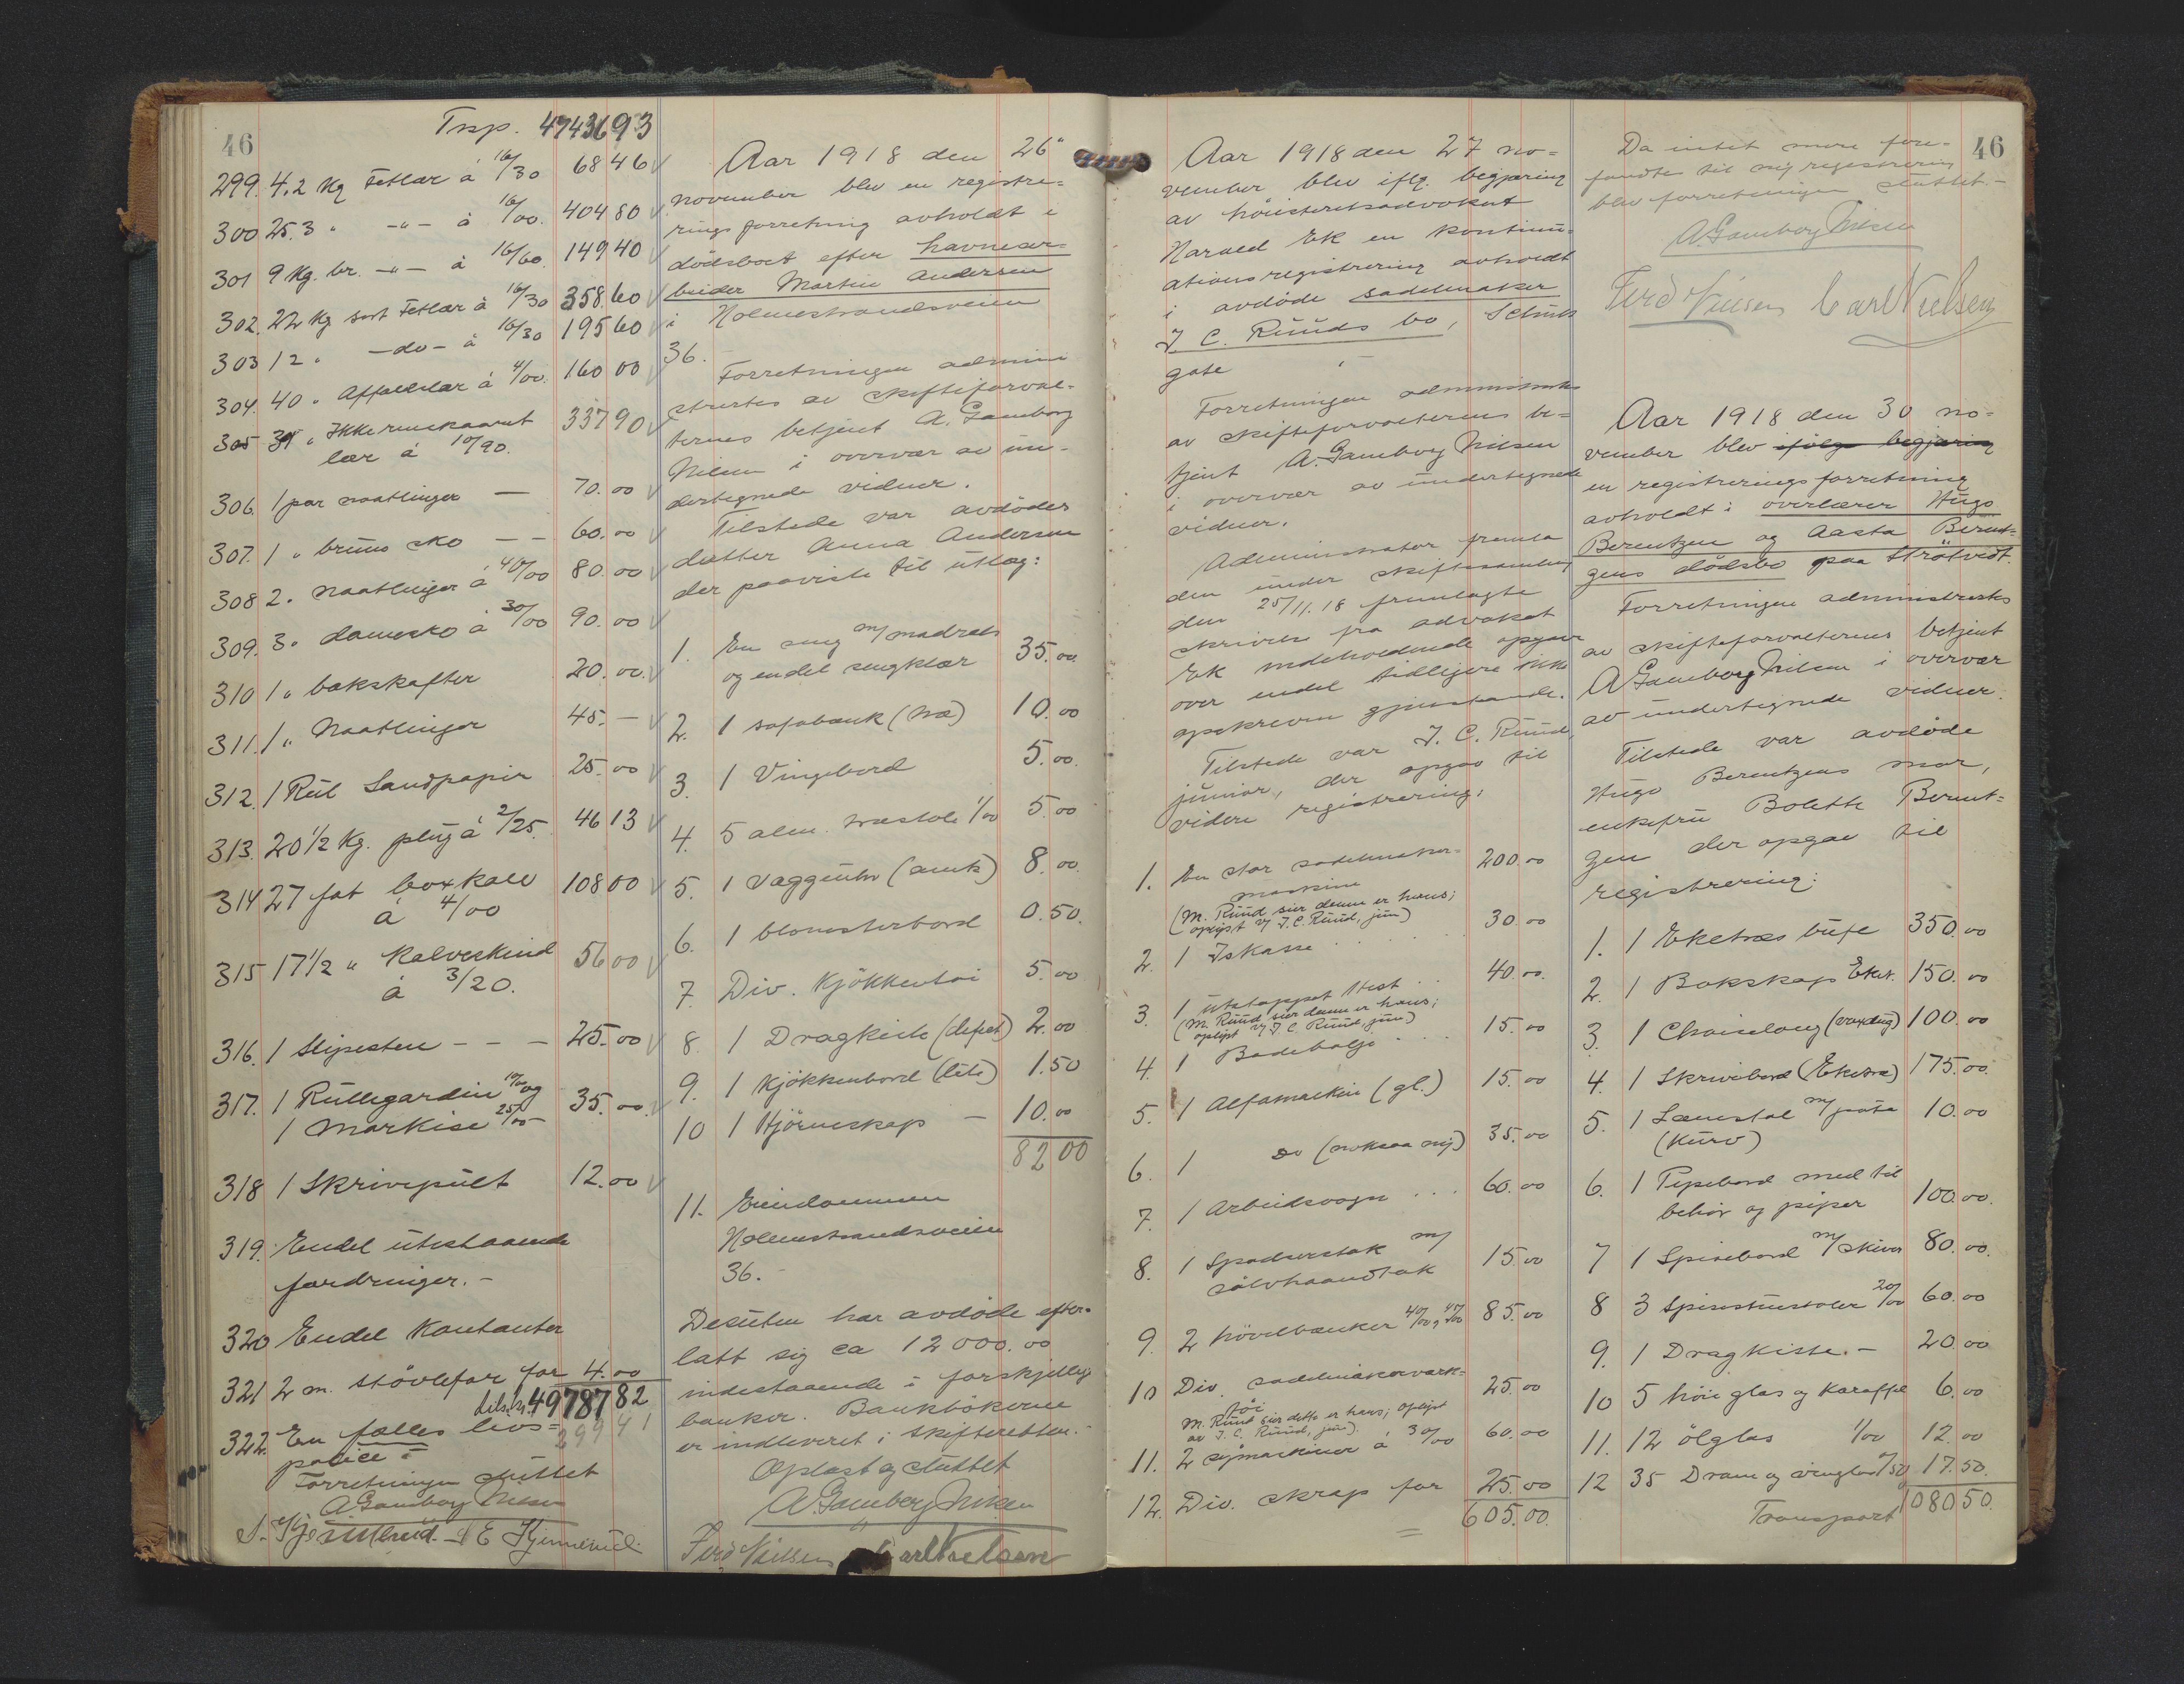 46
Trsp. 4743693
299. 4.2 Kg Fetlær à 16/30 68 46
300 25.3 " -"- à 16/00. 404 80
301 9 Kg. br. -"- à 16/60. 149 40
302. 22 Kg sort Fetlær à 16/30 358.60
303 12 " -do- à 16/30 195 60
304. 40 " Affaldslær à 4/00. 160 00
305 31 " Ikke renskaaret 337 90
lær à 10/90.
306. 1 par naatlinger — 70.00
307. 1 " bruns sko — — 60.00
308 2 " naatlinger à 40/00 80.00
309. 3 " damesko à 30/00 90.00
310 1 " bakskafter 20.00
311. 1 " Naatlinger 45.—
312. 1 Rul Sandpapir 25.00
313. 20 1/2 Kg. plug à 2/25. 46 13
314 27 fot boxkalv 108 00
à 4/00
315 17 1/2 " Kalveskind 56 00
à 3/20.
316. 1 Slipesten - - - 25.00
317. 1 Rullegardin 10/00 og 35.00
1 Markise 25/00
318 1 Skrivepult 12.00
319. Endel utestaaende
fordringer. -
320 Endel Kontanter
321 2 m. støvlefor for 4.00
tils. kr. 4978782
322. En fælles livs=
police =
Forretningen sluttet
A. Gamborg Nilsen
Aar 1918 den 26"
november blev en registre=
rings forretning avholdt i
dödsboet efter havnear=
beider Martin Andersen
i Holmestrandsveien
36.
Forretningen admini
strertes av skifteforval-
terens betjent A. Gamborg
Nilsen i overvær av un-
dertegnede vidner.
Tilstede var avdødes
datter Anna Andersen
der paaviste til utlæg:
1. En seng m/ madrats
og endel sengklær 35.00
2. 1 sofabænk (træ) 10.00
3. 1 Vingebord 5.00
4. 5 alm. træstole 1/00 5.00
5. 1 Vægguhr (antik) 8.00
6. 1 blomsterbord 0.50.
7. Div. Kjökkentöi 5.00
8. 1 Dragkiste (defect) 2.00
9. 1 Kjökkenbord (lite) 1.50
10 1 Hjörneskap — 10.00
82 00
11. Eiendommen
Holmestrandsveien
36.-
Desuten har avdøde efter-
latt sig ca 12000.00
indestaaende i forskjellige
banker. Bankbökerne
er indleveret i skifteretten.-
Oplæst og sluttet
A. Gamborg Nilsen
Ferd Nielsen Carl Nielsen
Aar 1918 den 27 no=
vember blev iflg. begjæring
av höiesteretsadvokat
Harald Ek en kontinu-
ationsregistrering avholdt
i avdøde sadelmaker
J C. Ruuds bo, Schults
gate
Forretningen administrertes
av skifteforvalterens be=
tjent A. Gamborg Nilsen
i overvær av undertegnede
vidner.
Administrator fremla
den under skiftesamling
den 25/11.18 fremlagte
skrivelse fra advokat
Ek indeholdende opgave
over endel tidligere ikke
opskreven gjenstande.
Tilstede var J. C. Ruud,
junior, der opgav til
videre registrering:
1. En stor sadelmaker- 200.00
maskine
(M. Ruud sier denne er hans;
oplyst v/ J. C. Ruud, jun)
2. 1 Iskasse . . . . 30.00
3. 1 utstoppet Hest . . 40.00.
(M. Ruud sier denne er hans;
oplyst v/ J C. Ruud, jun)
4. 1 Badebalje . . . . 15.00
5. 1 Alfamaskin (gl.) 15.00
6. 1 Do (noksaa ny) 35.00
7. 1 Arbeidsvogn . . . 60.00
8. 1 Spadserstok m/
sølvhaandtak 15.00
9. 2 hövelbænker 40/00 & 45/00 85.00
10 Div. sadelmakerværk=
töi 25.00
M. Ruud sier dette er hans; oplyst
av J. C. Ruud, jun).
11. 2 symaskiner à 30/00 60.00
12. Div. skrap for 25.00
605.00.
46
Da intet mere fore-
fandtes til ny registrering
blev forretningen sluttet.-
A. Gamborg Nilsen
Ferd Nielsen Carl Nielsen
Aar 1918 den 30 no=
vember blev ifølge begjæring
en registreringsforretning
avholdt i overlærer Hugo
Berentzen og Aasta Berent=
zens dødsbo paa Strøtvedt.
Forretningen administrertes
av skifteforvalterens betjent
A Gamborg Nilsen i overvær
av undertegnede vidner.
Tilstede var avdøde
Hugo Berentzens mor,
enkefru Bolette Berent=
zen der opgav til
registrering:
1. 1 Eketræs bufe 350.00
2. 1 Bokskap Eket. 150.00
3. 1 Chaiselong (voxdug) 100.00
4. 1 Skrivebord (Eketræ) 175.00.
5. 1 Lænestol m/ pute 10.00
(Kurv)
6. 1 Pipebord med til
behör og piper 100.00.
7 1 Spisebord m/ skiver 80.00.
8 3 Spisestuestoler 20/00 60.00
9. 1 Dragkiste.- 20.00
10 5 höie glas og Karaffel 6.00
11. 12 ölglas 1/00 12.00
12 35 Dram og vinglas 0/50 17.50.
Transport 1080 50.